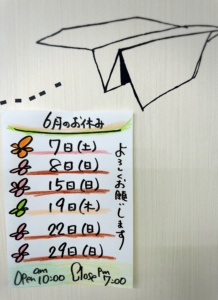 6月のお休み
7日(土)
8日(日)
15日(日)
19日(木)
22日(日)
29日(日)
よろしくお願いします
Open am 10:00 Close Pm 7:00